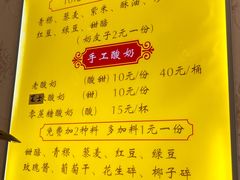 青稞、藜麦、紫米、酥油、
红豆、绿豆、甜醅
(奶皮子2元一份)
手工酸奶
老酸奶 (酸 甜) 10元/份 40元/桶
酸奶 (甜) 10元/份
零蔗糖酸奶 (酸) 15元/杯
免费加2种料 多加料1元一份
甜醅、青稞、藜麦、红豆、绿豆
玫瑰酱、葡萄干、花生碎、椰子碎